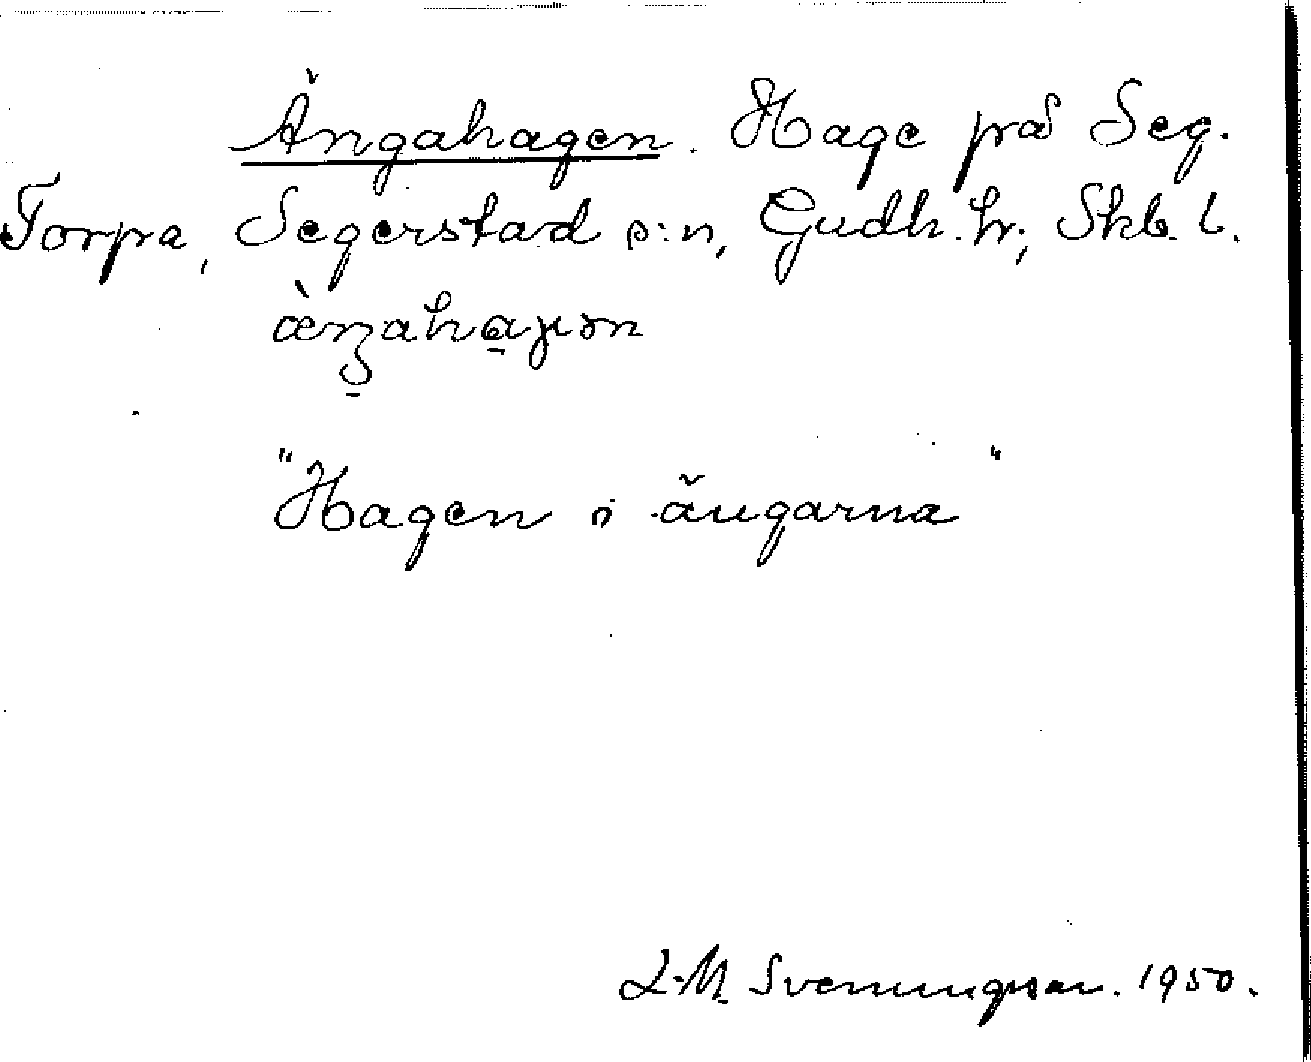 Ängahagen. Hage på Seg.
Torpa, Segerstad s:n, Gudh. hr, Skb. l.
"Hagen i ängarna"
L-M Svenungsson. 1950.